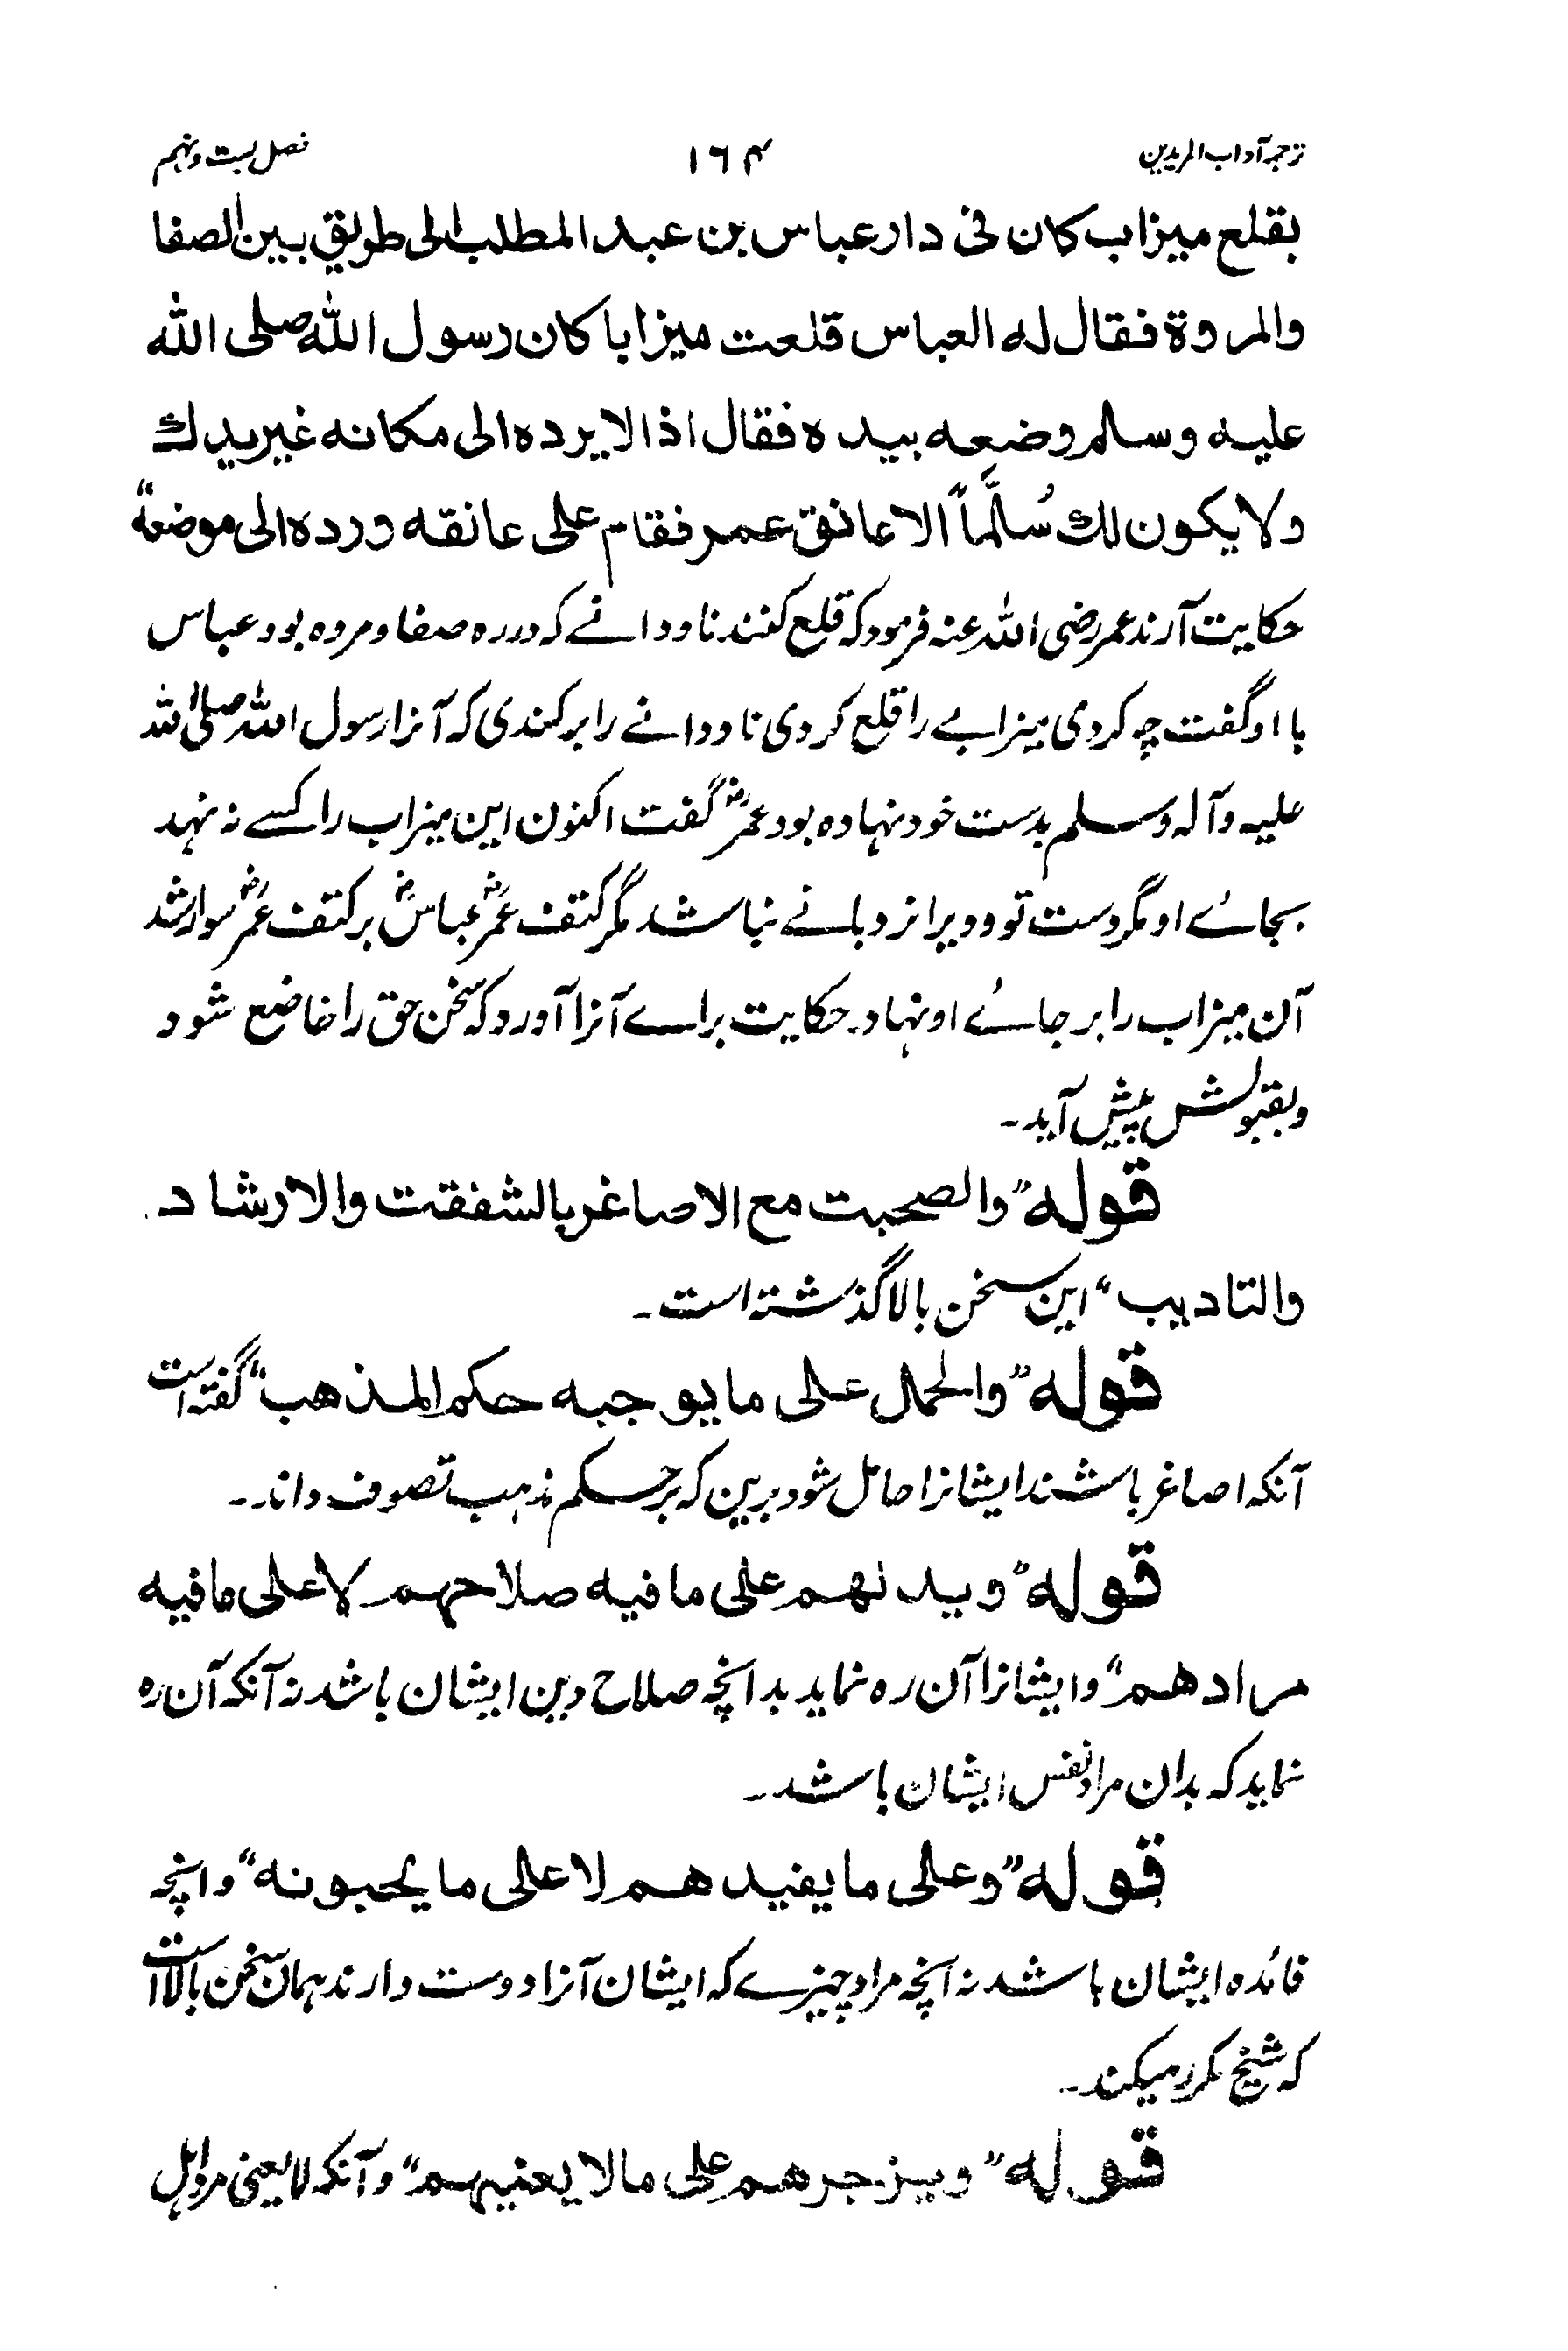 ترجمہ آداب المریدین ۱۶۴ فصل بست و نہم
بقلع میزاب کان فی دار عباس بن عبد المطلب الی طریق بین الصفا
والمروة فقال له العباس قلعت میزابا کان رسول الله صلی الله
علیه وسلم وضعه بیده فقال اذا لا یرده الی مکانه غیر یدك
ولا یکون لك سُلَّماً الا عاتق عمر فقام علی عاتقه ورده الی موضعه"
حکایت آرند عمر رضی اللہ عنہ فرمود کہ قلع کنند ناودانے کہ در رہ صفا و مروہ بود عباس
با او گفت چہ کردی میزابے را قلع کردی ناودانے را برکندی کہ آنرا رسول اللہ صلی اللہ
علیہ وآلہ وسلم بدست خود نہادہ بود عمرؓ گفت اکنون این میزاب را کسے نہ نہد
بجائے او مگر دست تو و ویرا نردبانے نباشد مگر کتف عمرؓ عباسؓ بر کتف عمرؓ سوار شد
آن میزاب را بر جائے او نہاد۔ حکایت براے آنرا آورد کہ سخن حق را خاضع شود
و بقبولش پیش آید۔
قوله "والصحبت مع الاصاغر بالشفقت والارشاد
والتادیب" این سخن بالا گذشتہ است۔
قوله "والحمل علی ما یوجبه حکم المذهب" گفتہ است
آنکہ اصاغر باشند ایشانرا حامل شود برین کہ بر حکم مذہب تصوف داند۔
قوله "ویدلهم علی ما فیه صلاحهم لا علی ما فیه
مرادهم" و ایشانرا آن رہ نماید بدانچہ صلاح دین ایشان باشد نہ آنکہ آن رہ
نماید کہ بدان مراد نفس ایشان باشد۔
قوله "وعلی ما یفیدهم لا علی ما یحبونه" وانچہ
فائدہ ایشان باشد نہ آنچہ مراد چیزے کہ ایشان آنرا دوست دارند ہمان سخن بالا است
کہ شیخ مکرر میکند۔
قوله "ویزجرهم علی ما لا یعنیهم" و آنکہ لا یعنی مر اہل